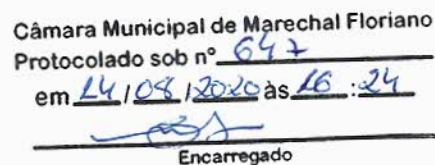 Câmara Municipal de Marechal Floriano
Protocolado sob nº 647
em 14/08/2020 às 16:24
Encarregado